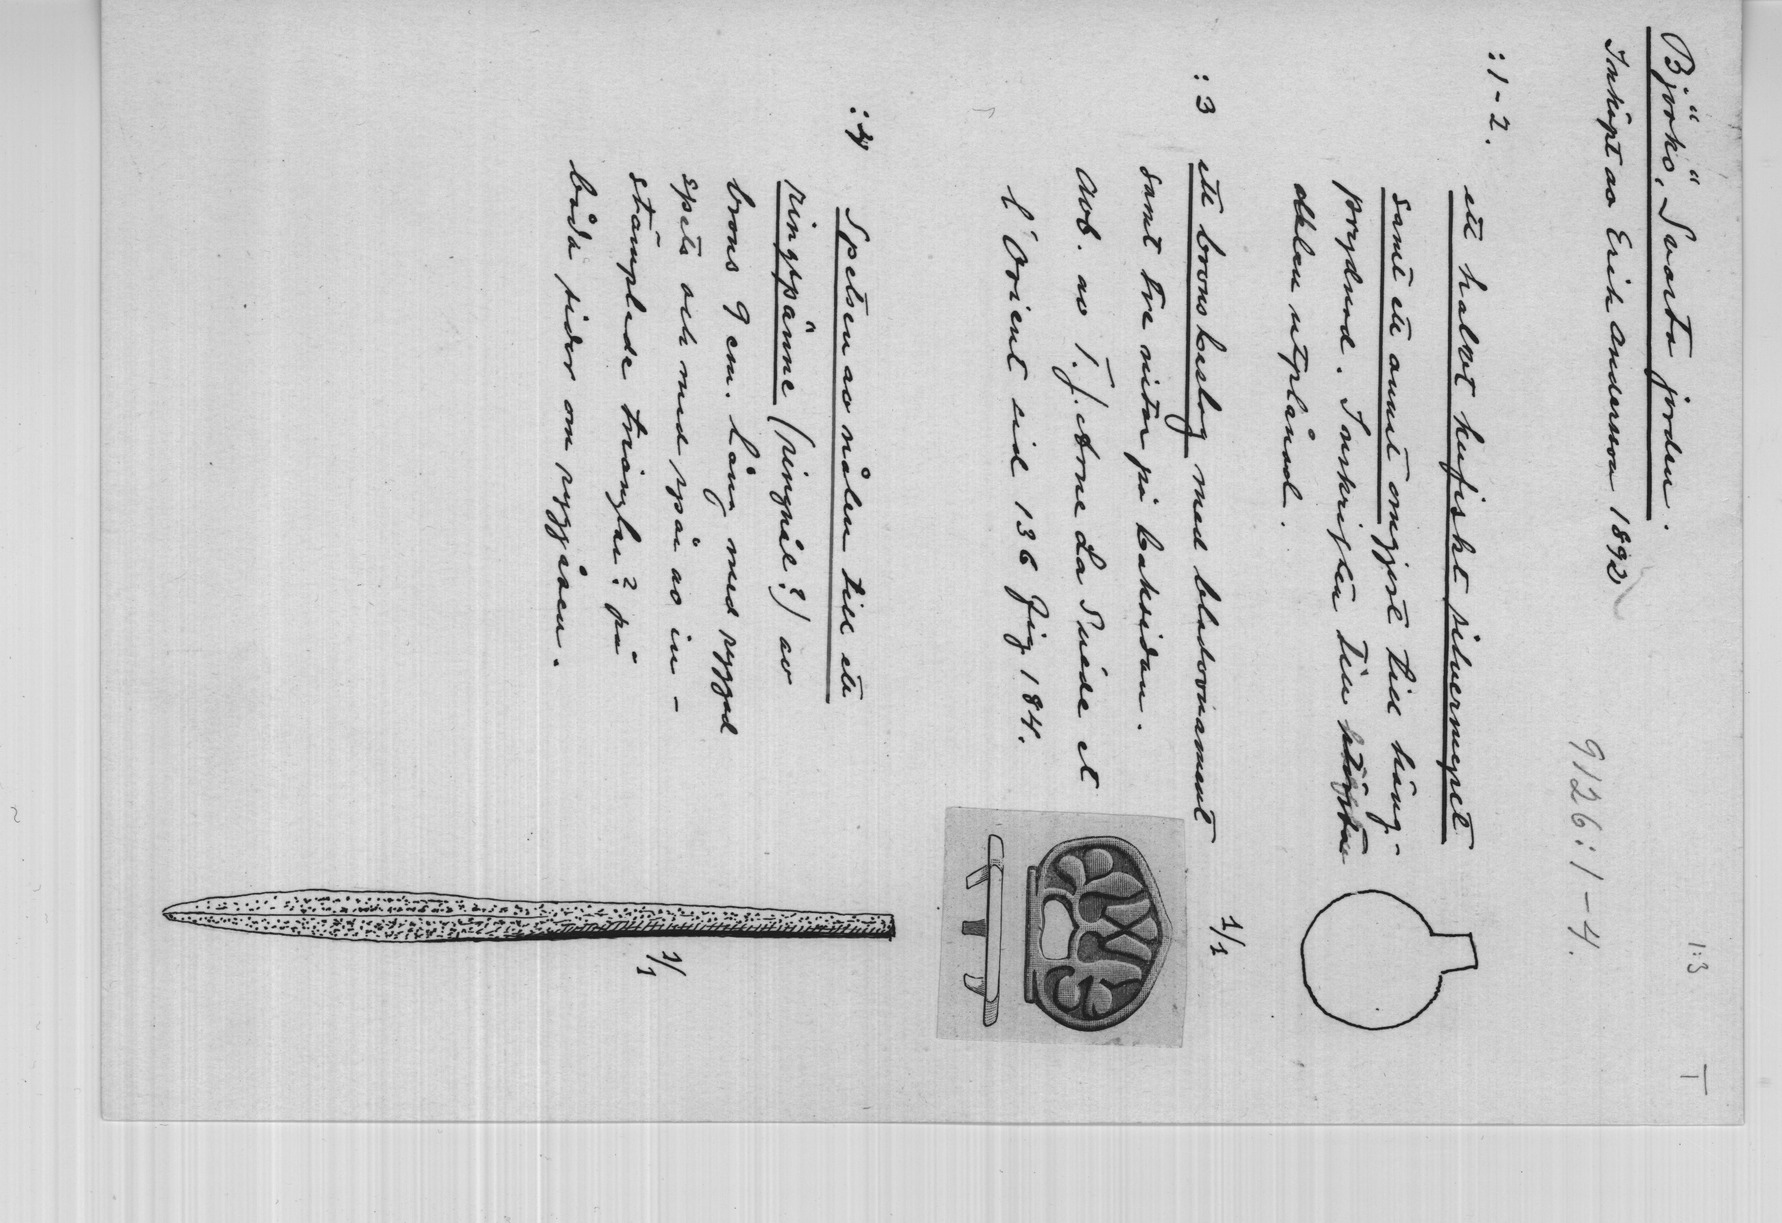 T
1:3
Björkö, Svarta jorden.
Inköpt av Erik Andersson 1892
9126:1-4.
:1-2.
ett halvt kufiskt silvermynt
samt ett annat omgjort till häng-
prydnad. Inskriften till största
delen utplånad.
:3
ett bronsbeslag med bladornament
1/1
samt tre nitar på baksidan.
Avb. av T.J. Arne La Suède et
l'Orient sid 136 fig 184.
:4
Spetsen av nålen till ett
ringspänne (ringnål?) av
brons 9 cm. lång med ryggad
spets och med spår av in-
stämplade trianglar? på
båda sidor om ryggåsen.
1/1